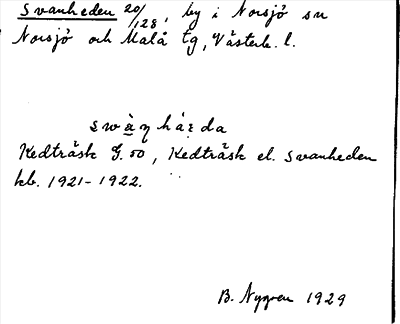 Svanheden 20/128, by i Norsjö sn
Norsjö och Malå tg, Västerb. l.
swàṇhá:da
Kedträsk G. 50, Kedträsk el. Svanheden
kb. 1921-1922.
B. Nygren 1929